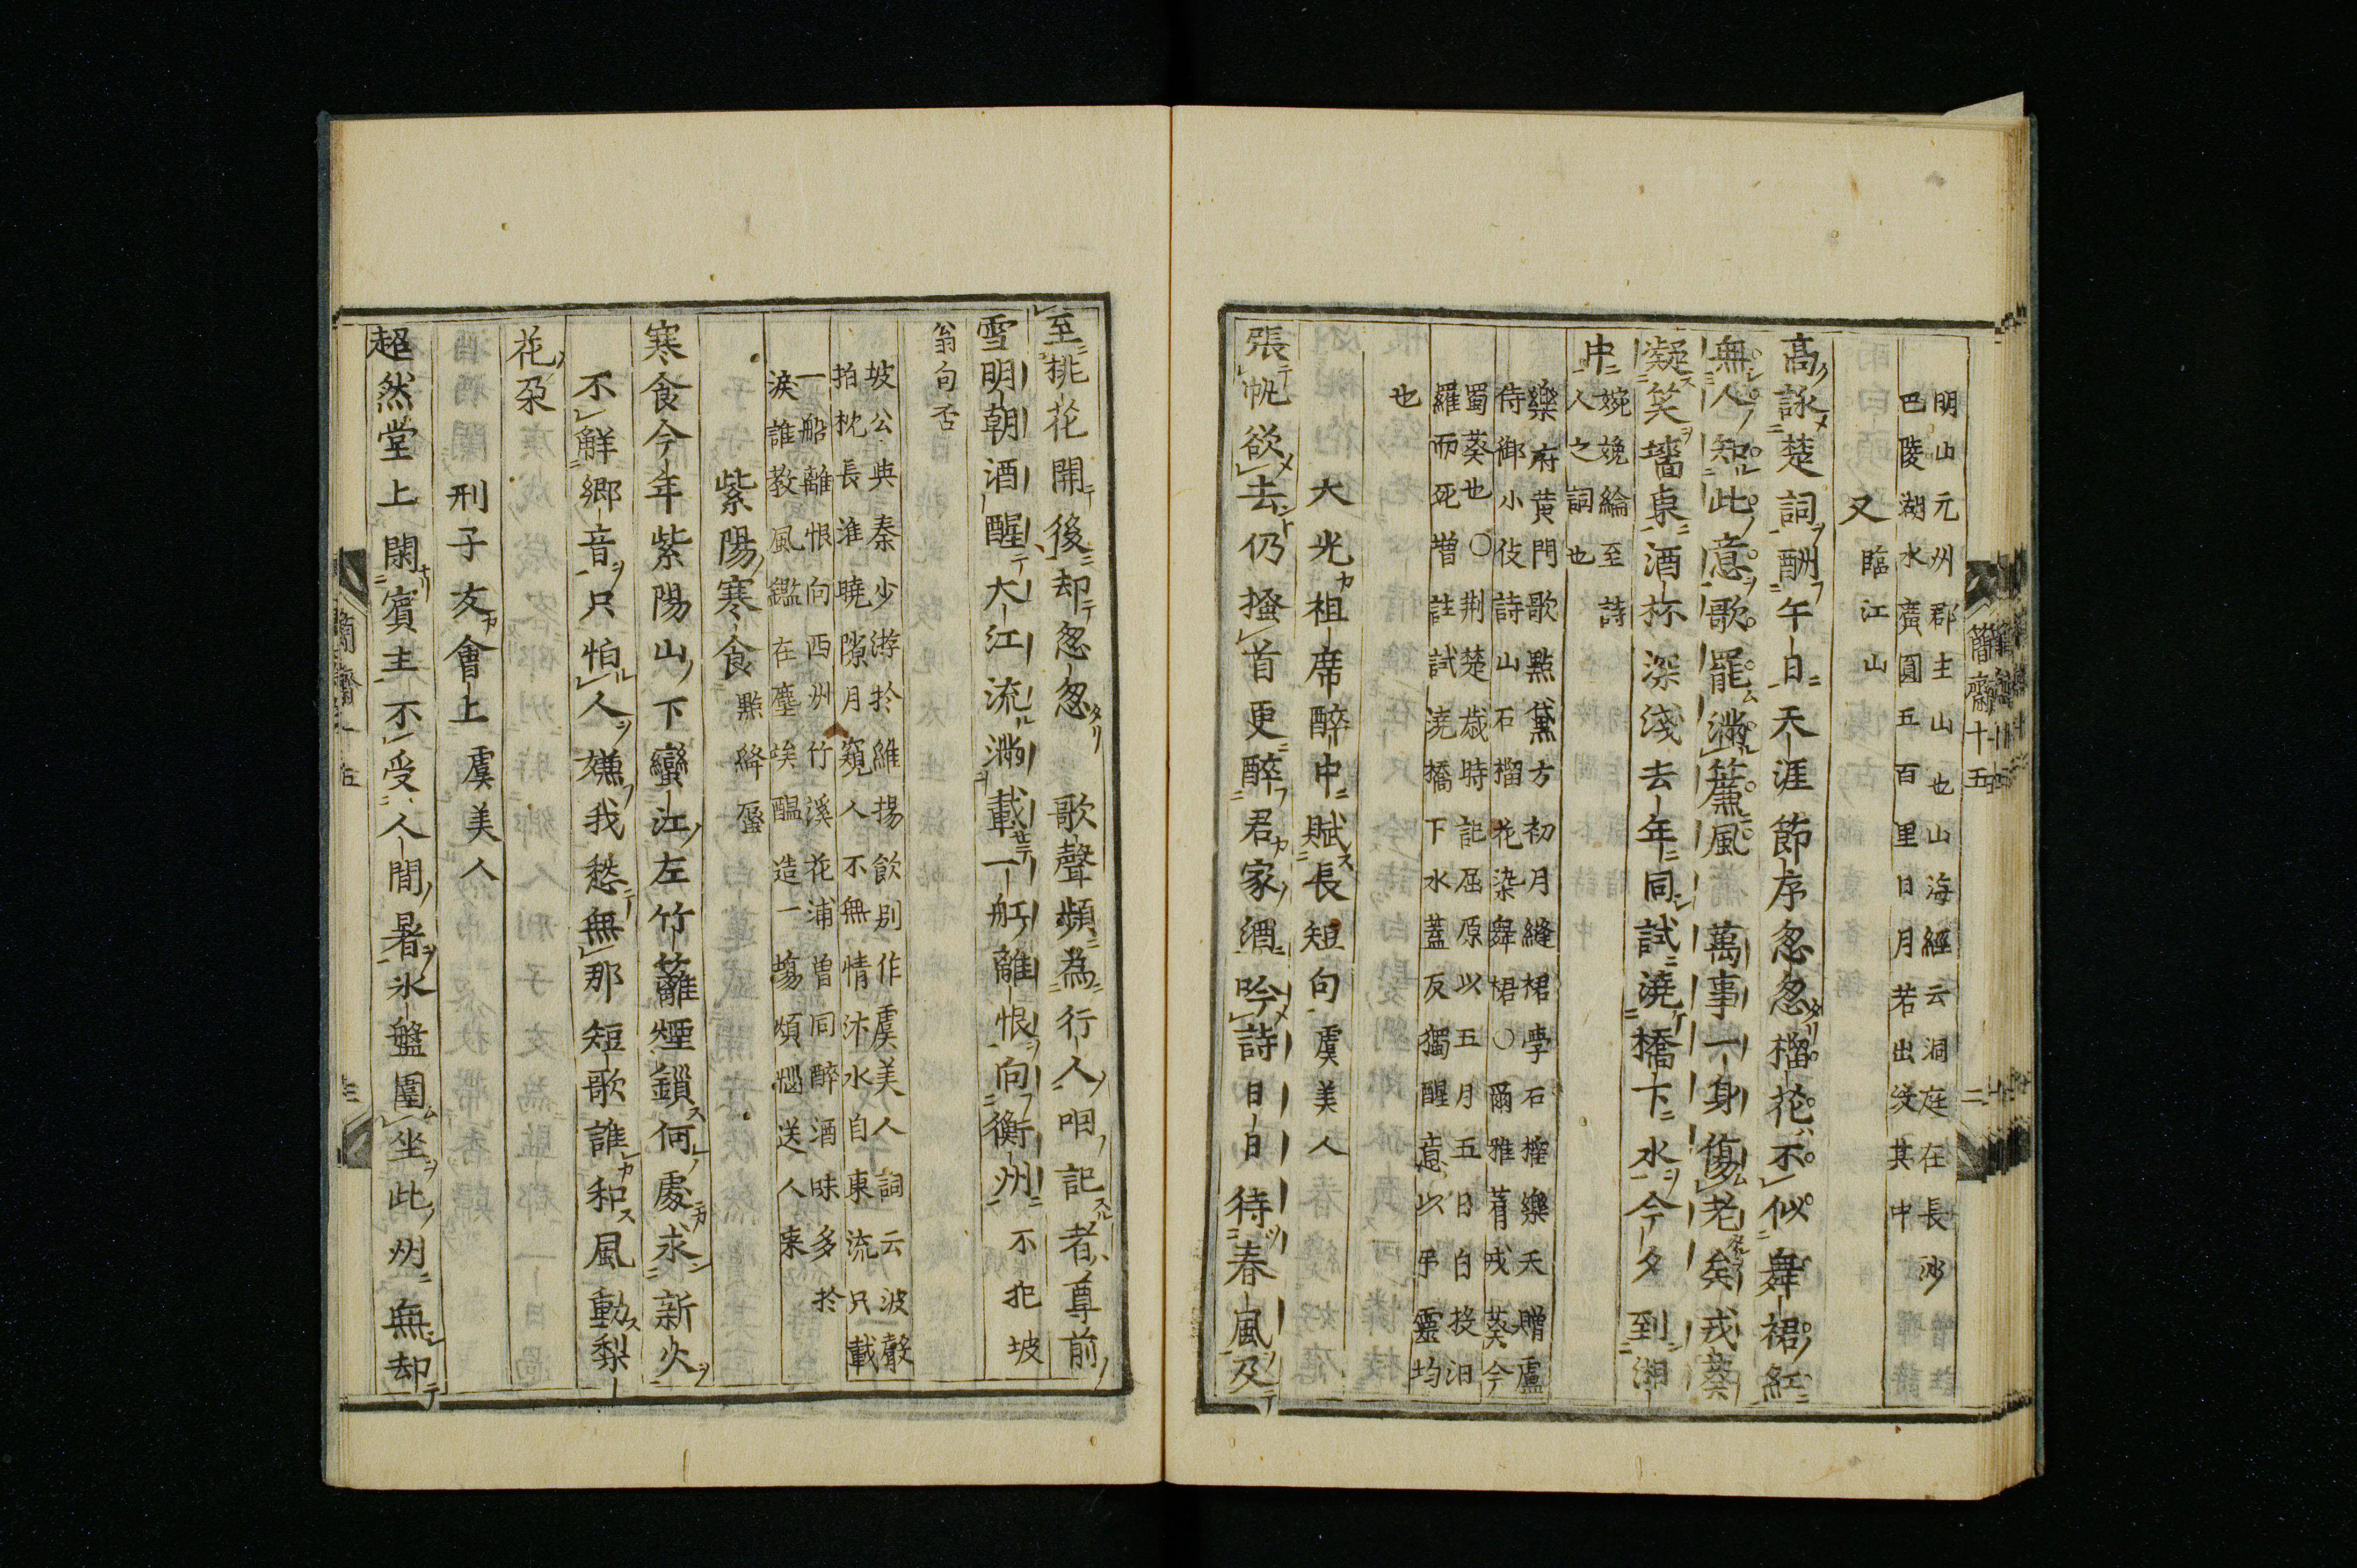 明山元州郡主山也山海經云洞庭在長沙
巴陵湖水廣圓五百里日月若出沒其中
又　臨江山
高詠楚詞酬午日天涯節序忽忽榴花不似舞裙紅
無人知此意歌罷滿簾風　萬事一身傷老矣戎葵
凝笑墻東酒杯深淺去年同試澆橋下水今夕到湘
中
婉娩綸至詩
人之詞也
樂府黃門歌點黛方初月縫裙學石榴樂天贈盧
侍御小伎詩山石榴花染舞裙○爾雅菺戎葵今
蜀葵也○荆楚歲時記屈原以五月五日自投汨
羅而死增註試澆橋下水蓋反獨醒意以乎靈均
也
大光祖席醉中賦長短句　虞美人
張帆欲去仍搔首更醉君家酒吟詩日日待春風及
簡齋十五
二
至桃花開後却忽忽　歌聲頻為行人咽記者尊前
雪明朝酒醒大江流滿載一船離恨向衡州　不犯坡
翁句否
坡公與秦少游於維揚飲别作虞美人詞云波聲
拍枕長淮曉隙月窺人不無情汴水自東流只載
一船離恨向西州竹溪花浦曽同醉酒味多於
淚誰教風鑑在塵埃醞造一塲煩惱送人來
紫陽寒食　點絳唇
寒食今年紫陽山下蠻江左竹籬煙鎖何處求新火
不解鄉音只怕人嫌我愁無那短歌誰和風動梨
花朶
刑子友會上　虞美人
超然堂上閑賓主不受人間暑氷盤圍坐此州無却